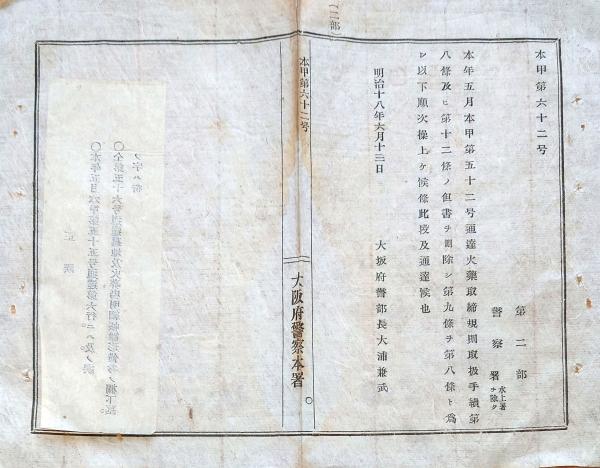 本甲第六十二号
第二部
警察署 水上署ヲ除ク
本年五月本甲第五十二号通達火薬取締規則取扱手續第
八條及ヒ第十二條ノ但書ヲ削除シ第九條ヲ第八條ト為
シ以下順次操上ケ候條此段及通達候也
明治十八年六月十三日
大坂府警部長大浦兼武
二部
本甲第六十二号
大阪府警察本署
正誤
〇本年五月本甲第五十五号通達第六行ニハ及ノ誤
ノ字ハ衍